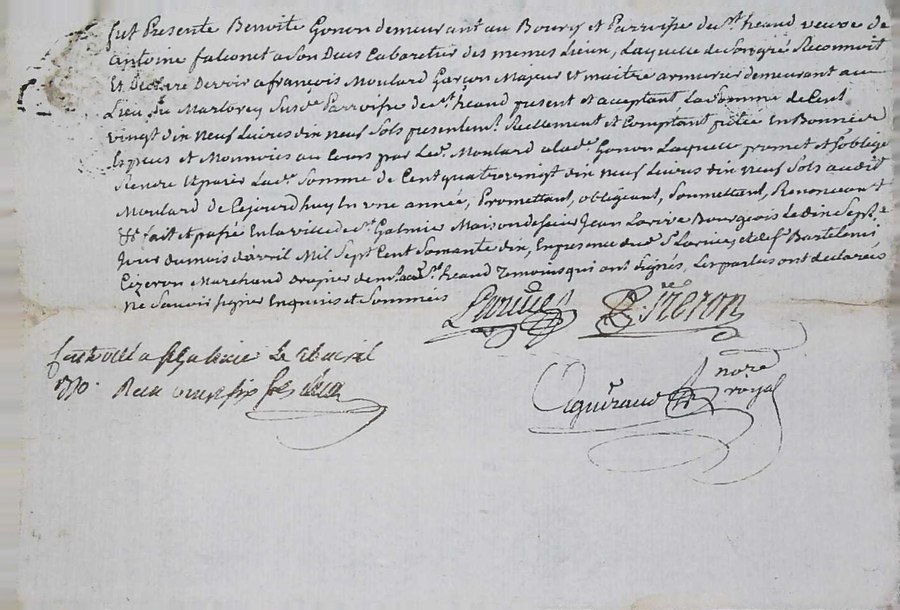 fut Presente Benoite Gonon demeurant au Bourg et Parroisse de st. heand veuve de
antoine falconet a son Deces Cabaretier des memes Lieux, Laquelle de son gré Reconnoit
Et Declare Devoir a francois Moulard Garçon Majeur et maitre armurier demeurant au
Lieu du susde. Parroisse de st. heand present et acceptant La somme de Cent
vingt dix neuf Livres dix neuf sols presentemt. Reellement et Comptant pretée En Bonnes
Especes et Monnoies au Cours par Led. Moulard a lade. Gonon Laquelle promet et s'oblige
Rendre Et paier Lade. somme de Cent quatre vingt dix neuf Livres dix neuf sols audit
Moulard de Cejourd'huy En une année, Promettant, obligeant, soumettant, Renonceant
&c fait et passé En la ville de st. Galmier Maison de sieur Jean Larive Bourgeois Le dix sept.e
Jour du mois d'avril Mil sept Cent soixante dix, En presence dud. sr. Larive, et de sr. Bartelemi
Ezeron Marchand drapier demt. aud. st. heand Temoins qui ont signés, Les parties ont declarées
ne savoir signer Enquis et sommées
Larive
avril
1770. Reçu
nore.
royal